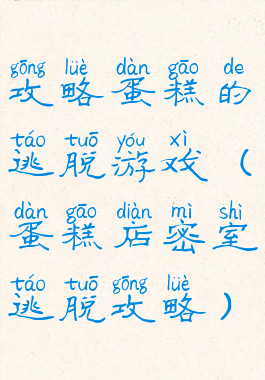 gōng lüè dàn gāo de
攻略蛋糕的
táo tuō yóu xì
逃脱游戏（
dàn gāo diàn mì shì
蛋糕店密室
táo tuō gōng lüè
逃脱攻略）